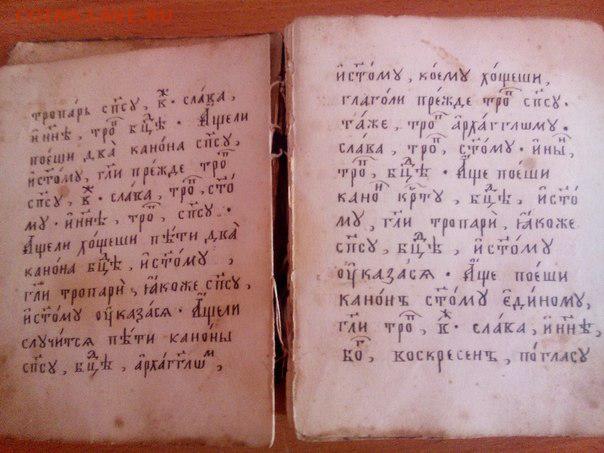 тропа́рь сп҃су , в҃ · сла́ва ,
и҆ н҃нѣ , тро , бцⷣѣ · А҆́щели
пое́ши два̀ кано́на сп҃су ,
и҆ ст҃о́му , гл҃и пре́жде тро
сп҃су , в҃ · сла́ва , тро , ст҃о
му · и҆ н҃нѣ , тро , сп҃су ·
А҆́щели хо́щеши пѣ́ти два̀
кано́на бцⷣѣ , и҆ ст҃о́му ,
гл҃и тропарѝ , ꙗ҆́коже сп҃су ,
и҆ ст҃о́му оу҆каза́сѧ · А҆́щели
случи́тсѧ пѣ́ти кано́ны
сп҃су , бцⷣѣ , а҆рха́гг҃лѡⷨ ,
и҆ ст҃о́му , коему хо́щеши ,
глаго́ли пре́жде троⷫ сп҃су ·
та́же , троⷫ а҆рха́гг҃лѡму ·
слава , троⷫ , ст҃о́му · и҆ ны́ ,
троⷫ , бцⷣѣ · А҆́ще поеши
каноⷩ кр҃ту , бцⷣѣ , и҆ ст҃о
му , гл҃и тропарѝ , ꙗ҆́коже
сп҃су , бцⷣѣ , и҆ ст҃о́му
оу҆каза́сѧ · А҆́ще пое́ши
кано́нъ ст҃о́му є҆ди́ному ,
гл҃и троⷫ , в҃ · сла́ва , и҆ н҃нѣ ,
бо҃ , воскресенъ , по гла́су